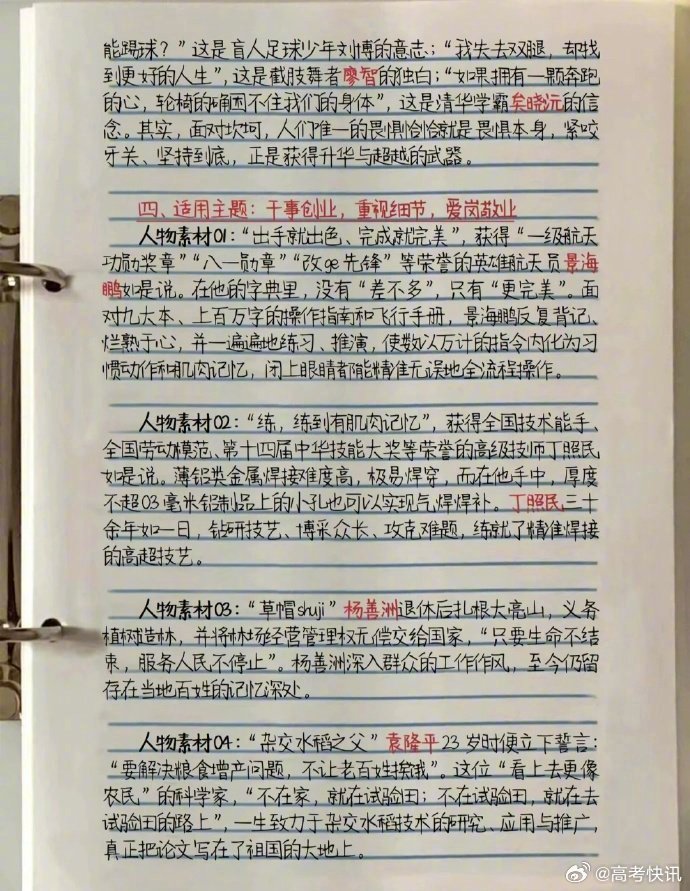 能踢球？”这是盲人足球少年刘博的意志；“我失去双腿，却找
到更好的人生”，这是截肢舞者廖智的独白；“如果拥有一颗奔跑
的心，轮椅的确困不住我们的身体”，这是清华学霸矣晓沅的信
念。其实，面对坎坷，人们唯一的畏惧恰恰就是畏惧本身，紧咬
牙关、坚持到底，正是获得升华与超越的武器。
四、适用主题：干事创业，重视细节，爱岗敬业
人物素材01：“出手就出色、完成就完美”，获得“一级航天
功勋奖章”“八一勋章”“改ge先锋”等荣誉的英雄航天员景海
鹏如是说。在他的字典里，没有“差不多”，只有“更完美”。面
对九大本、上百万字的操作指南和飞行手册，景海鹏反复背记、
烂熟于心，并一遍遍地练习、推演，使数以万计的指令内化为习
惯动作和肌肉记忆，闭上眼睛都能精准无误地全流程操作。
人物素材02：“练，练到有肌肉记忆”，获得全国技术能手、
全国劳动模范、第十四届中华技能大奖等荣誉的高级技师丁照民
如是说。薄铝类金属焊接难度高，极易焊穿，而在他手中，厚度
不超03毫米铝制品上的小孔也可以实现气焊焊补。丁照民三十
余年如一日，钻研技艺、博采众长、攻克难题，练就了精准焊接
的高超技艺。
人物素材03：“草帽shuji”杨善洲退休后扎根大亮山，义务
植树造林，并将林场经营管理权无偿交给国家，“只要生命不结
束，服务人民不停止”。杨善洲深入群众的工作作风，至今仍留
存在当地百姓的记忆深处。
人物素材04：“杂交水稻之父”袁隆平23岁时便立下誓言：
“要解决粮食增产问题，不让老百姓挨饿”。这位“看上去更像
农民”的科学家，“不在家，就在试验田；不在试验田，就在去
试验田的路上”，一生致力于杂交水稻技术的研究、应用与推广，
真正把论文写在了祖国的大地上。
@高考快讯